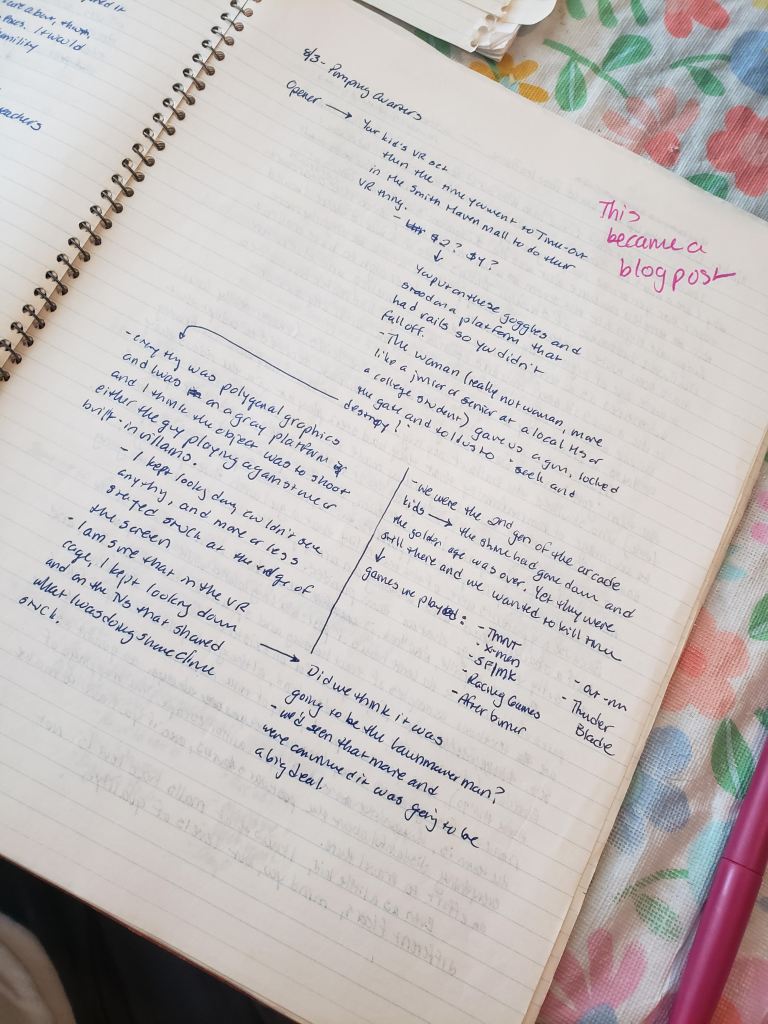 8/3 - Pumping Quarters
Opener →
Your kid's VR set
then the time you went to Time-Out
in the Smith Haven Mall to do their
VR thing.
- $2? $4?
↓
You put on these goggles and
stood on a platform that
had rails so you didn't
fall off.
- The woman (really not woman, more
like a junior or senior at a local HS or
a college student) gave us a gun, locked
the gate and told us to "seek and
destroy!"
- everything was polygonal graphics
and I was on a gray platform
and I think the object was to shoot
either the guy playing against me or
built-in villains.
- I kept looking down, couldn't see
anything, and more or less
stayed stuck at the edge of
the screen
- I am sure that in the VR
cage, I kept looking down
and on the TVs that shared
what I was doing
suck.
- we were the 2nd gen of the arcade
kids → the shine had gone down and
the golden age was over. Yet they were
still there and we wanted to kill time
↓
games we played:
- TMNT
- X-men
- SF/MK
- Racing Games
- After burner
- Out-run
- Thunder
Blade
→ Did we think it was
going to be the Lawnmower man?
- we'd seen that movie and
were convinced it was going to be
a big deal.
This
became a
blog post
different
teachers